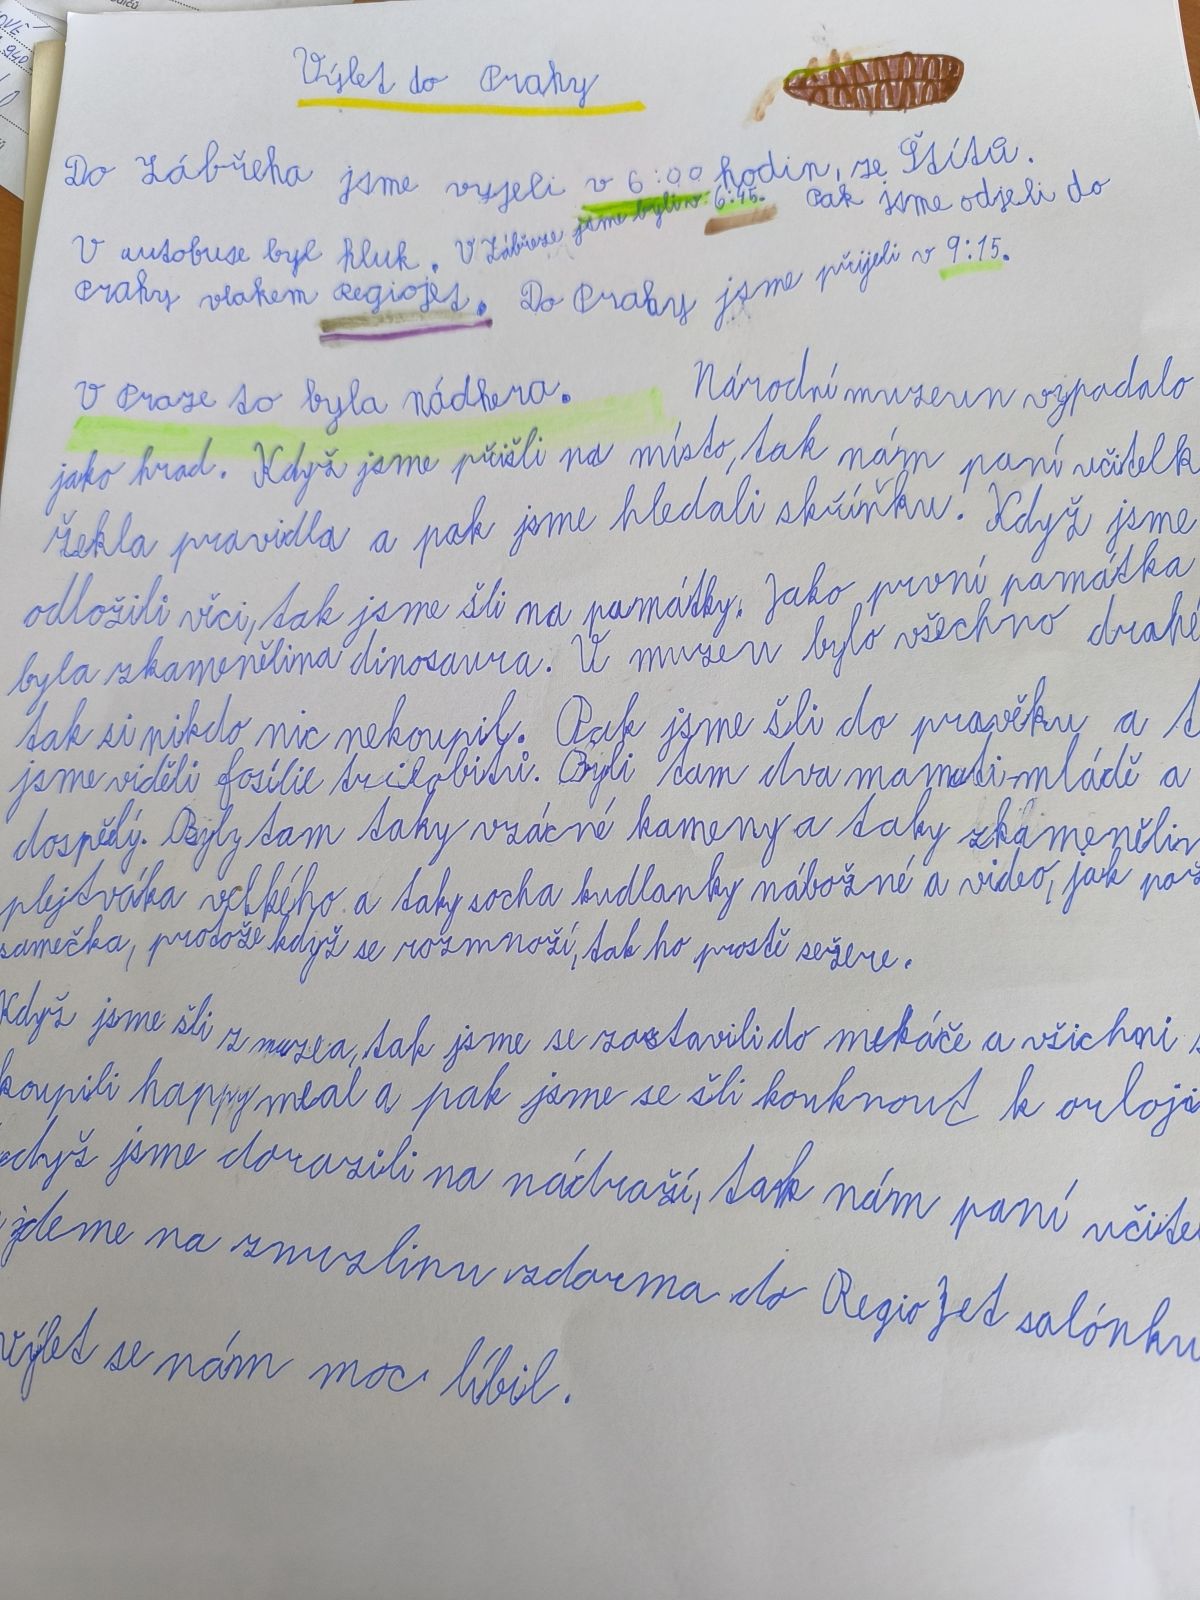 Výlet do Prahy
Do Zábřeha jsme vyjeli v 6:00 hodin, ze Štítů.
V autobuse byl hluk. V Zábřeze jsme byli v 6:45. Pak jsme odjeli do
Prahy vlakem Regiojet. Do Prahy jsme přijeli v 9:15.
V Praze to byla nádhera. Národní muzeun vypadalo
jako hrad. Když jsme přišli na místo, tak nám paní učitelk
řekla pravidla a pak jsme hledali skříňku. Když jsme
odložili věci, tak jsme šli na památky. Jako první památka
byla zkamenělina dinosaura. V muzeu bylo všechno drahé
tak si nikdo nic nekoupil. Pak jsme šli do pravěku a t
jsme viděli fosílie trilobitů. Byli tam dva mamuti-mládě a
dospělý. Byly tam taky vzácné kameny a taky zkamenělin
plejtváka velkého a taky socha kudlanky nábožné a video, jak pož
samečka, protože když se rozmnoží, tak ho prostě sežere.
Když jsme šli z muzea, tak jsme se zastavili do mekáče a všichni s
koupili happy meal a pak jsme se šli kouknout k orloji
dyž jsme dorazili na nádraží, tak nám paní učitel
jdeme na zmrzlinu zdarma do RegioJet salónku
výlet se nám moc líbil.